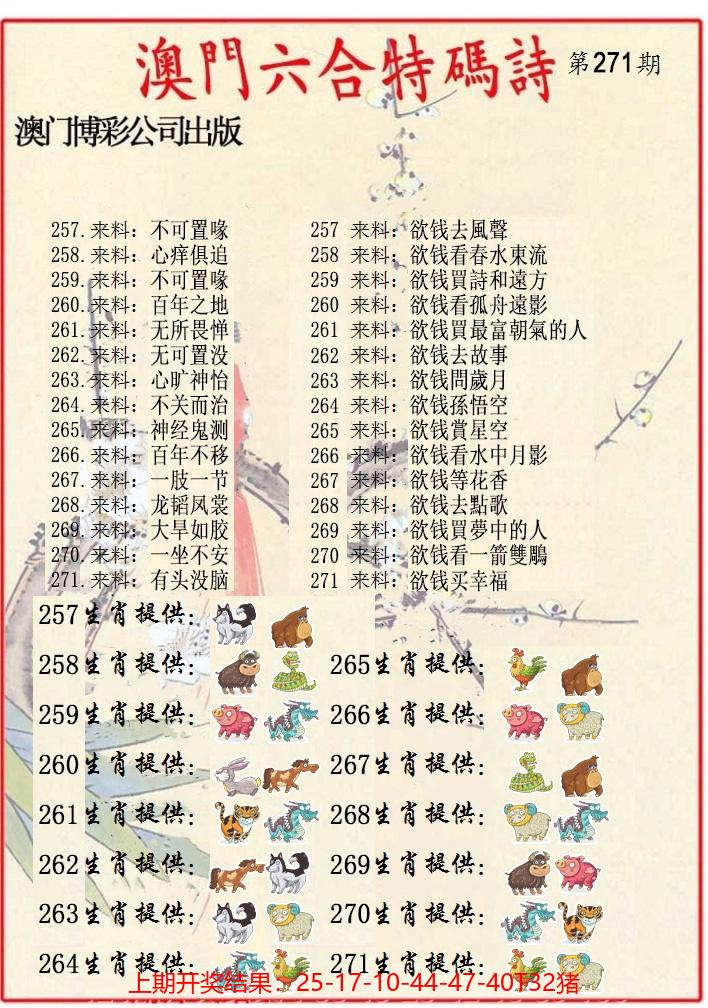 澳門六合特碼詩 第271期
澳门博彩公司出版
257.来料：不可置喙 257 来料：欲钱去風聲
258.来料：心痒俱追 258 来料：欲钱看春水東流
259.来料：不可置喙 259 来料：欲钱買詩和遠方
260.来料：百年之地 260 来料：欲钱看孤舟遠影
261.来料：无所畏惮 261 来料：欲钱買最富朝氣的人
262.来料：无可置没 262 来料：欲钱去故事
263.来料：心旷神怡 263 来料：欲钱問歲月
264.来料：不关而治 264 来料：欲钱孫悟空
265.来料：神经鬼测 265 来料：欲钱賞星空
266.来料：百年不移 266 来料：欲钱看水中月影
267.来料：一肢一节 267 来料：欲钱等花香
268.来料：龙韬凤裳 268 来料：欲钱去點歌
269.来料：大旱如胶 269 来料：欲钱買夢中的人
270.来料：一坐不安 270 来料：欲钱看一箭雙鵰
271.来料：有头没脑 271 来料：欲钱买幸福
257生肖提供：
258生肖提供： 265生肖提供：
259生肖提供： 266生肖提供：
260生肖提供： 267生肖提供：
261生肖提供： 268生肖提供：
262生肖提供： 269生肖提供：
263生肖提供： 270生肖提供：
264生肖提供： 271生肖提供：
上期开奖结果：25-17-10-44-47-40T32猪